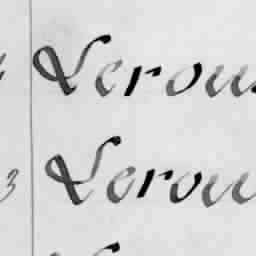 Lerou
3 Lerou